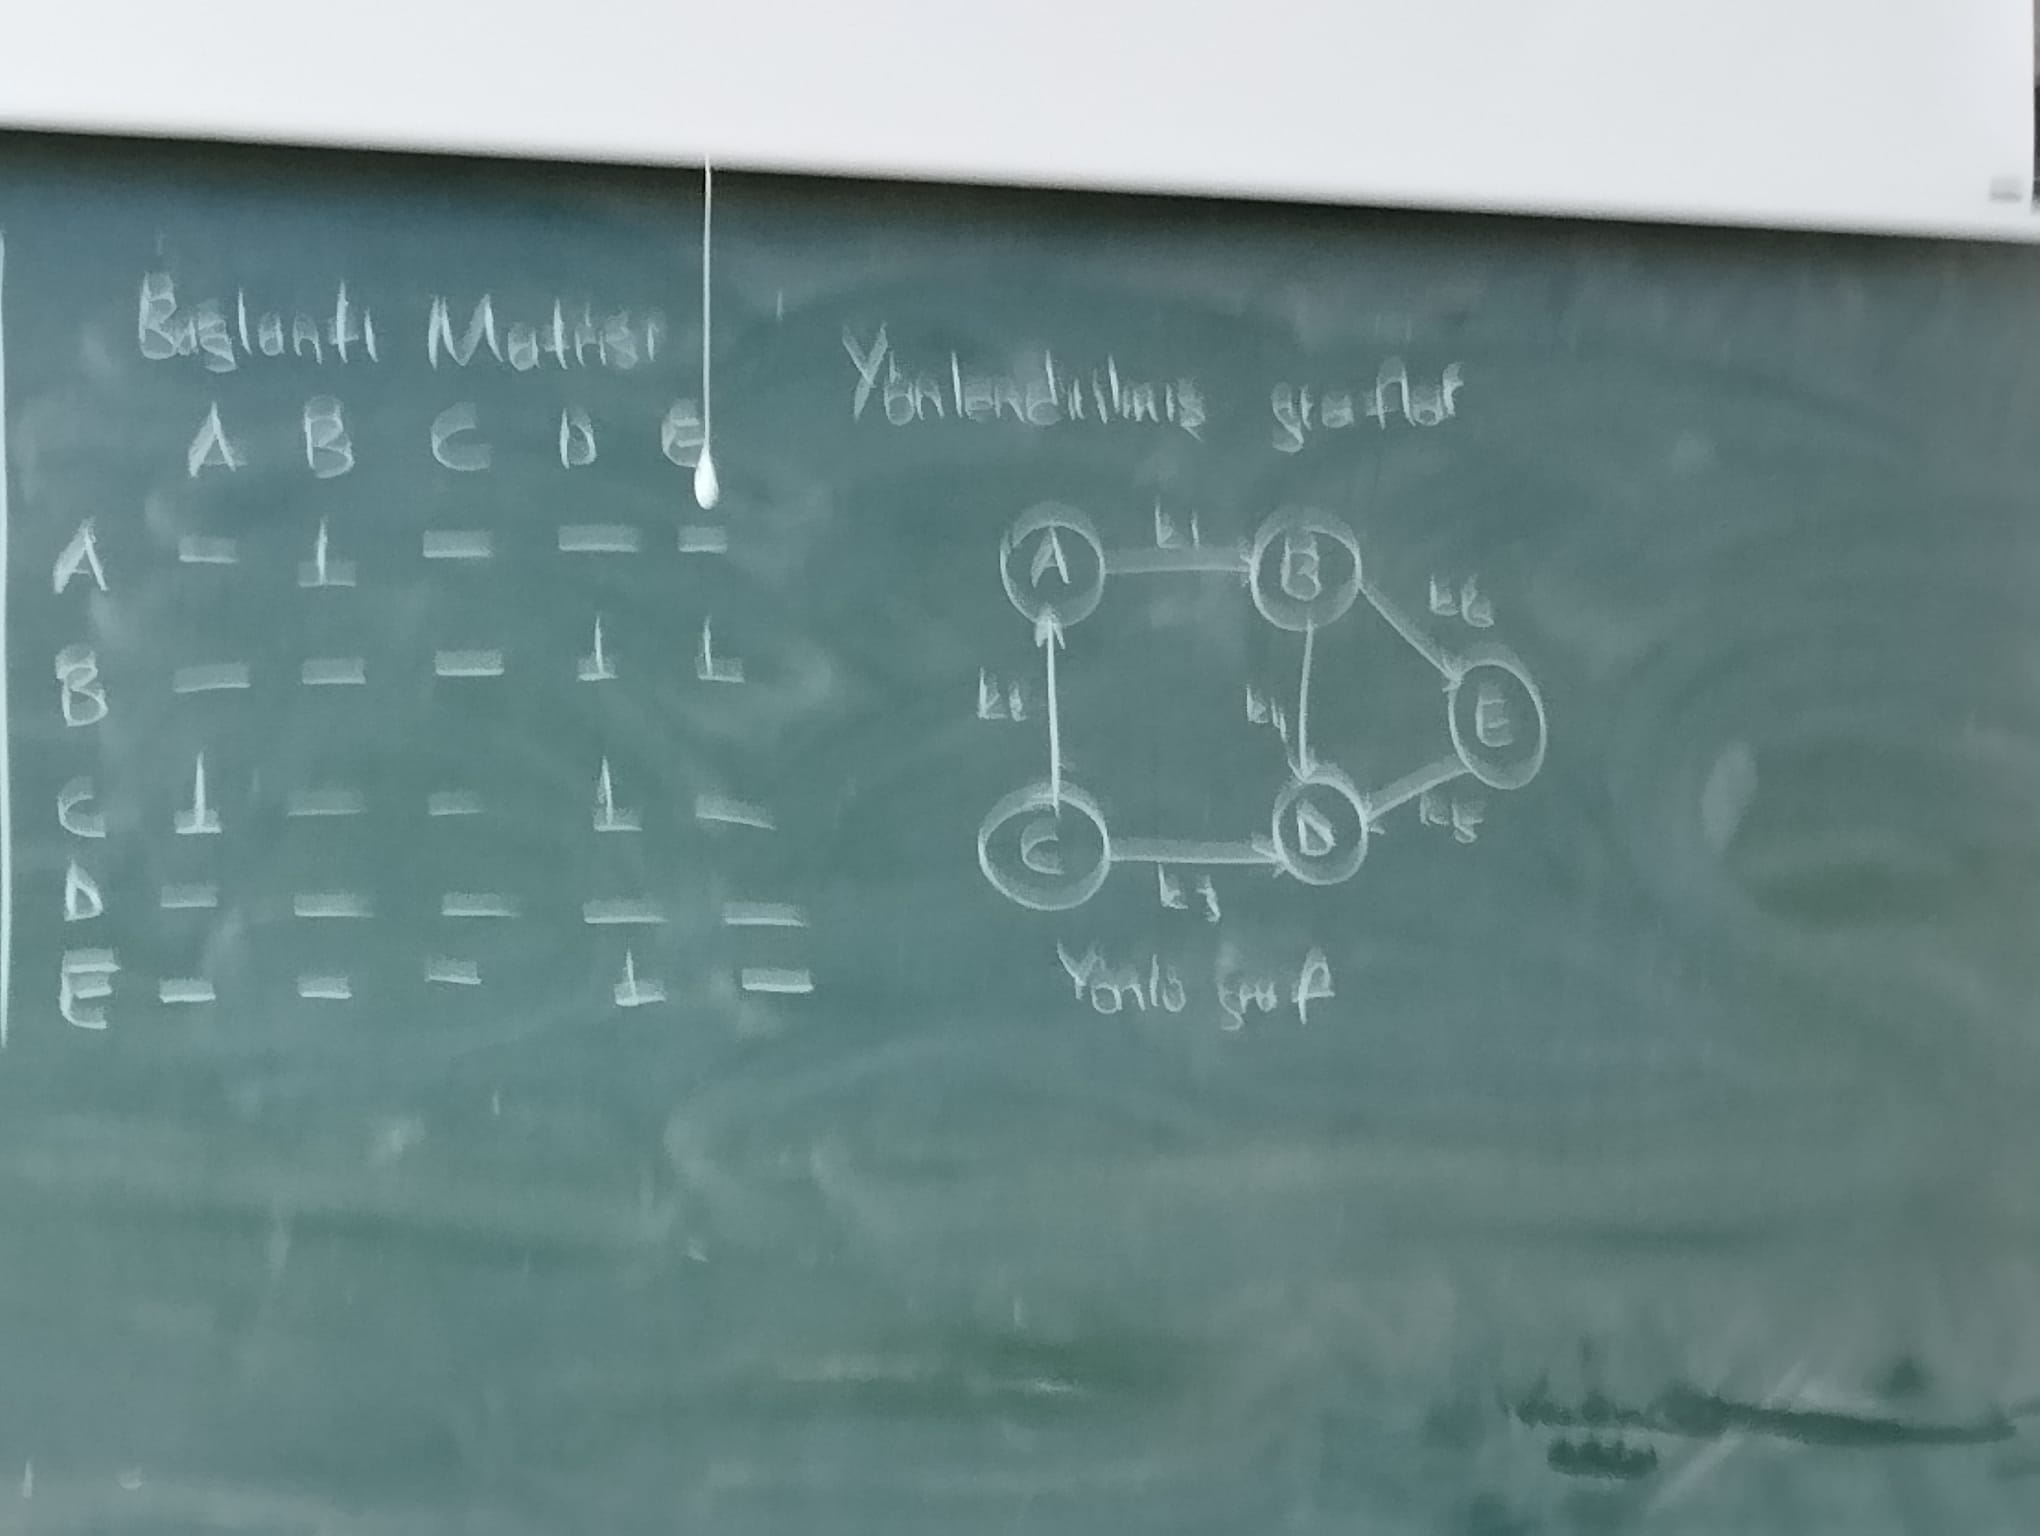 Bağlantı Matrisi
A B C D E
A - 1 - - -
B - - - 1 1
C 1 - - 1 -
D - - - - -
E - - - 1 -
Yönlendirilmiş graflar
A k1 B
k6
k2 k4 E
C k3 D k5
Yönlü graf